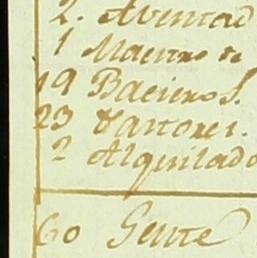 2. Aventad
1 Maestro de
19 Baciero S.
23 Pastores.
2 Alquilado
60 Gente